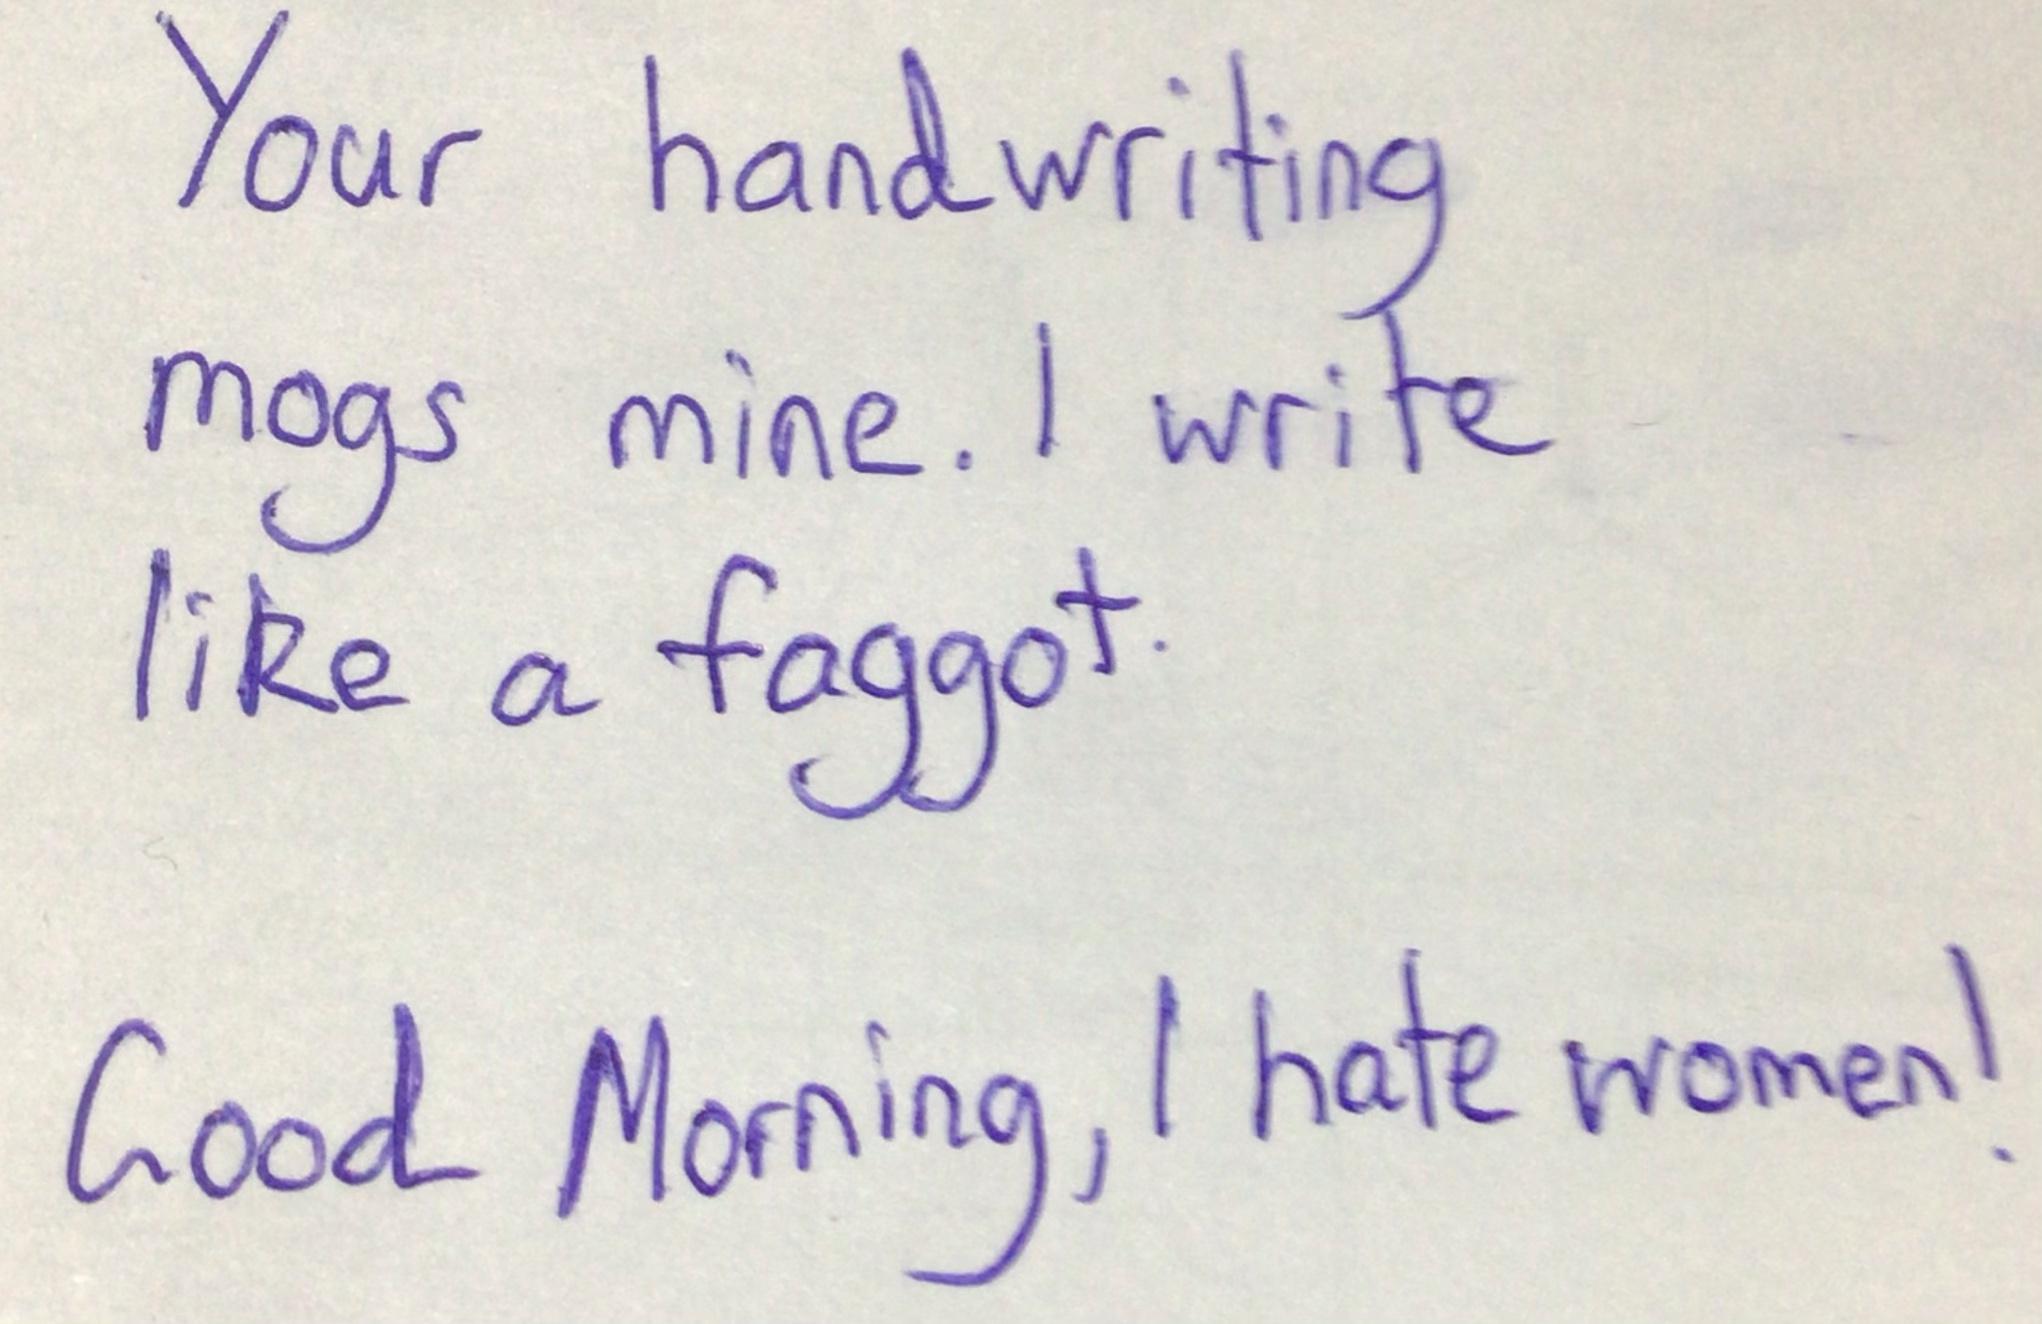 Your handwriting
mogs mine. I write
like a faggot.
Good Morning, I hate women!